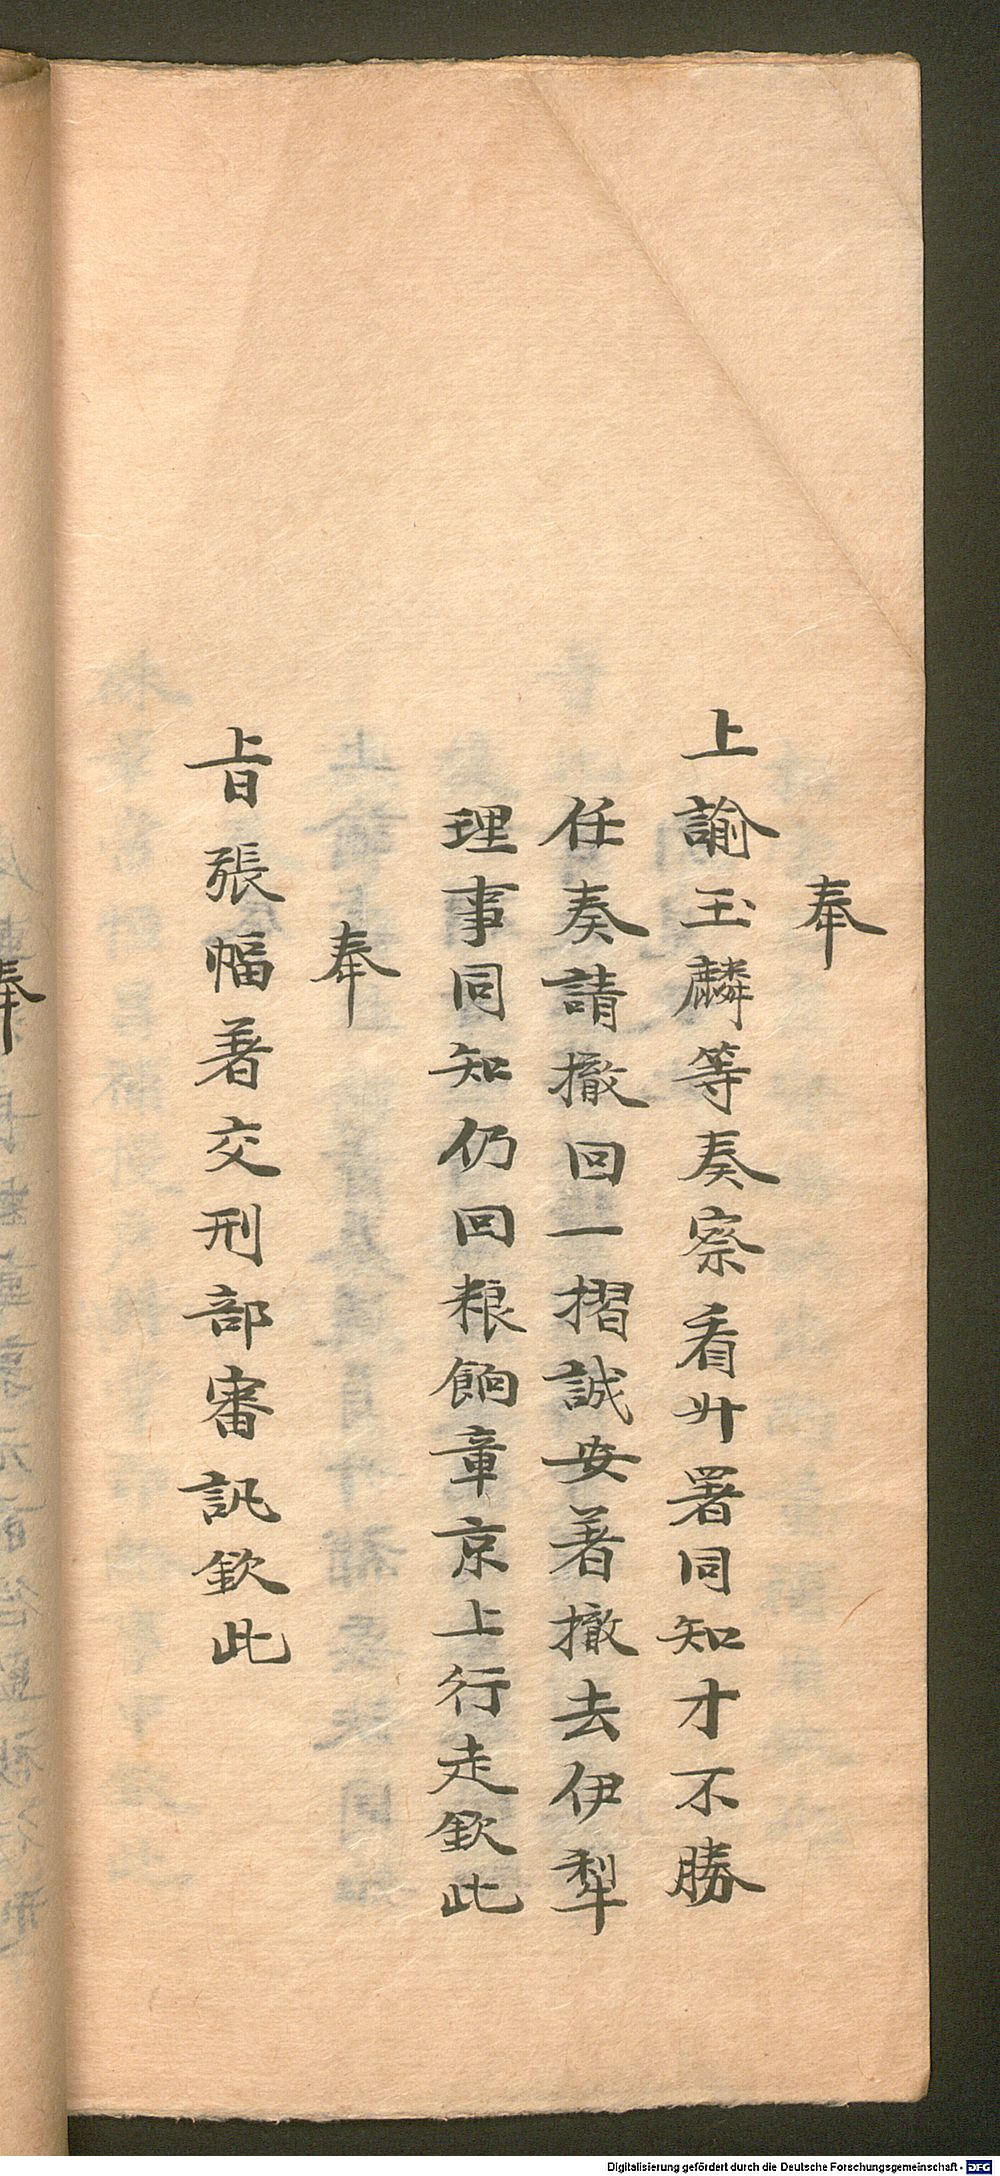 奉
上諭玉麟等奏察看升署同知才不勝
任奏請撤回一摺誠安著撤去伊犁
理事同知仍回粮餉章京上行走欽此
奉
旨張幅著交刑部審訊欽此
奉
Digitalisierung gefördert durch die Deutsche Forschungsgemeinschaft - DFG